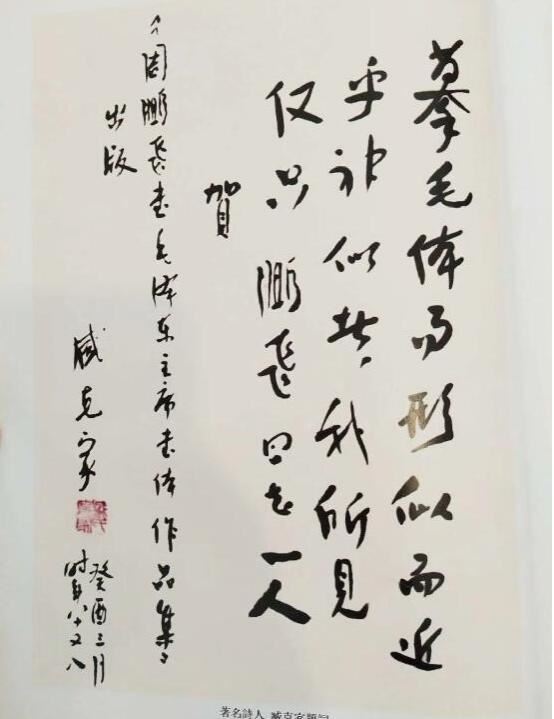 摹毛体得形似而近
乎神似者，我所見
仅只鹏飛同志一人
賀
《周鹏飛書毛泽东主席書体作品集》
出版
臧克家
癸酉三月
时年八十又八
著名詩人 臧克家題詞